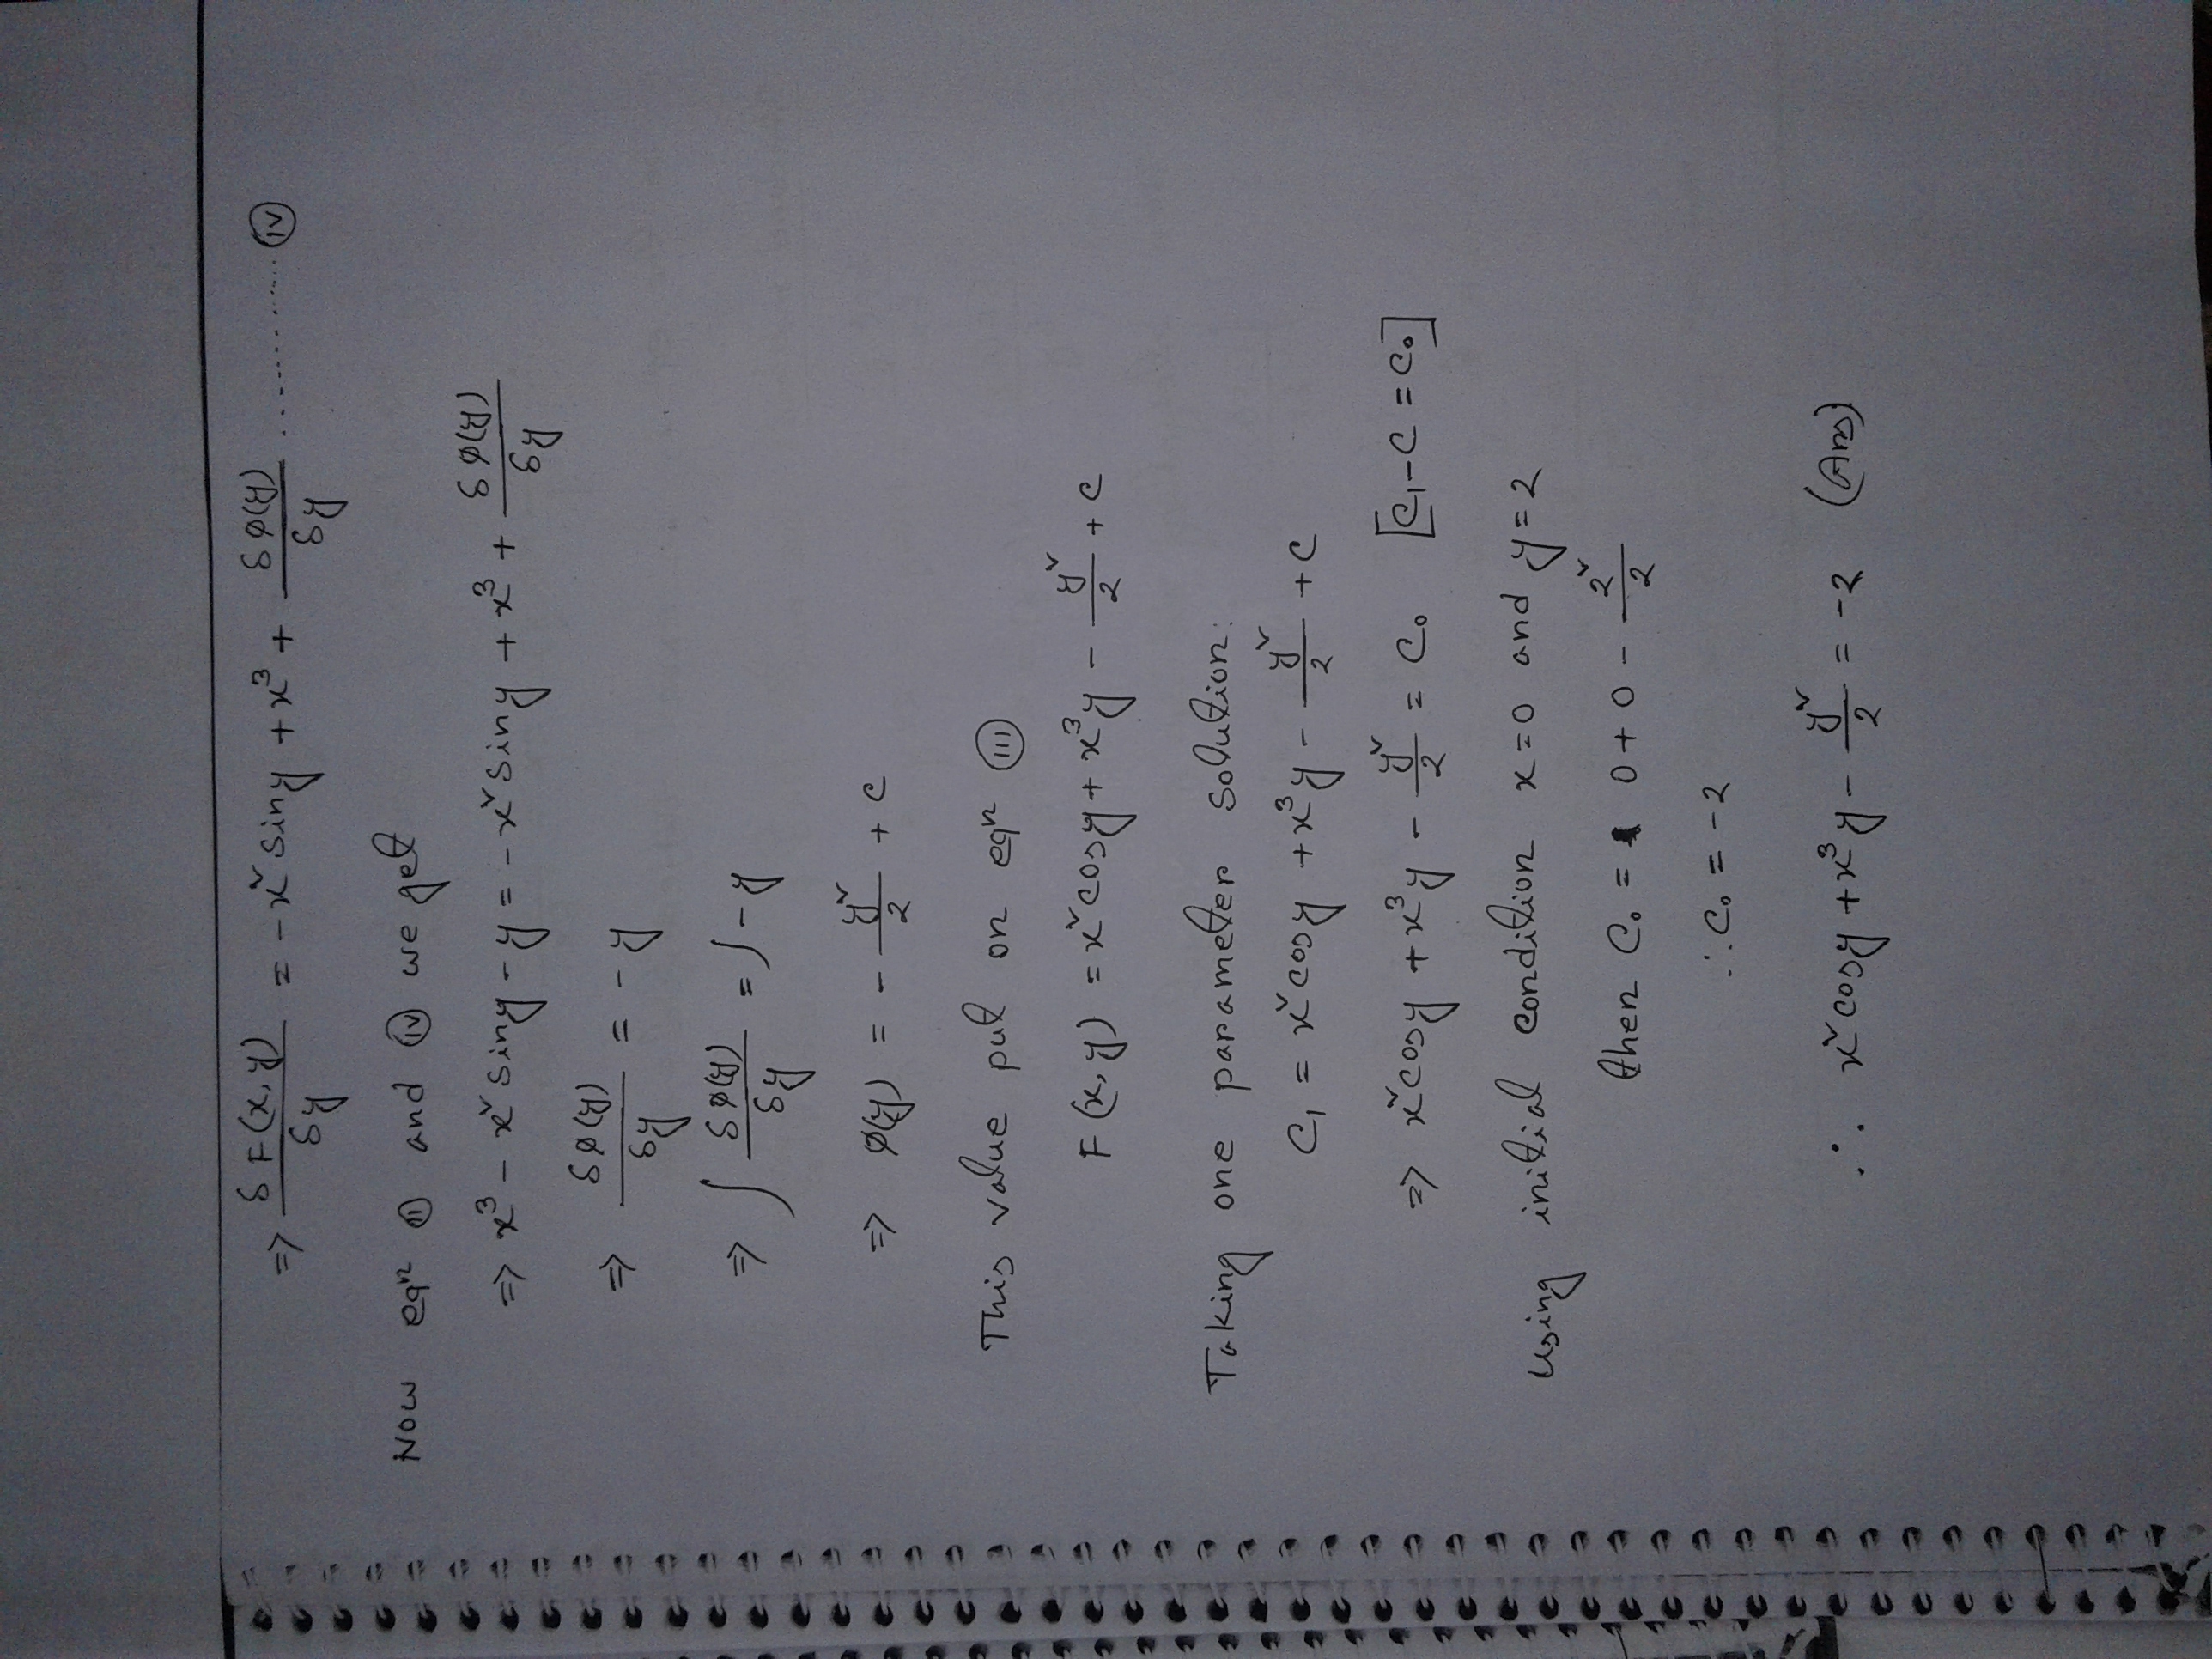 ⇒ δF(x, y)/δy = -x² siny + x³ + δφ(y)/δy ............ (iv)
Now eqⁿ (ii) and (iv) we get
⇒ x³ - x² siny - y = -x² siny + x³ + δφ(y)/δy
⇒ δφ(y)/δy = -y
⇒ ∫ δφ(y)/δy = ∫ -y
⇒ φ(y) = - y²/2 + c
This value put on eqⁿ (iii)
F(x, y) = x² cosy + x³y - y²/2 + c
Taking one parameter solution:
C₁ = x² cosy + x³y - y²/2 + c
⇒ x² cosy + x³y - y²/2 = C₀ [C₁ - C = C₀]
Using initial condition x=0 and y=2
then C₀ = 0 + 0 - 2²/2
∴ C₀ = -2
∴ x² cosy + x³y - y²/2 = -2 (Ans)